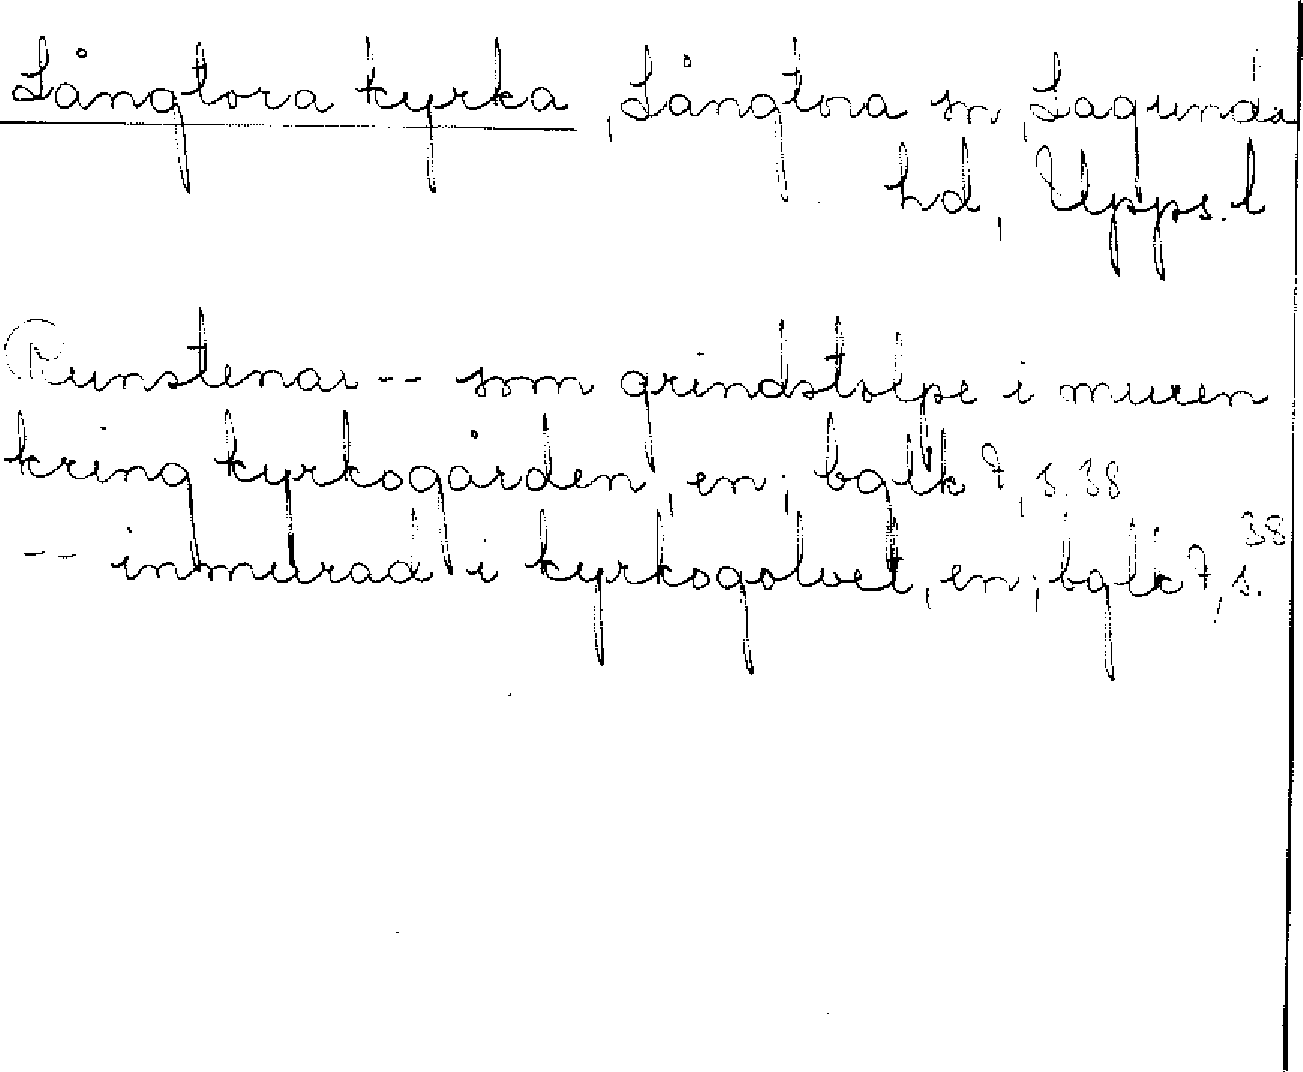 Långtora kyrka, Långtora sn, Lagunda
hd, Upps. l
Runstenar -- som grindstolpe i muren
kring kyrkogården, en; bglk 7, s. 38
-- inmurad i kyrkogolvet, en; bglk 7, s. 38